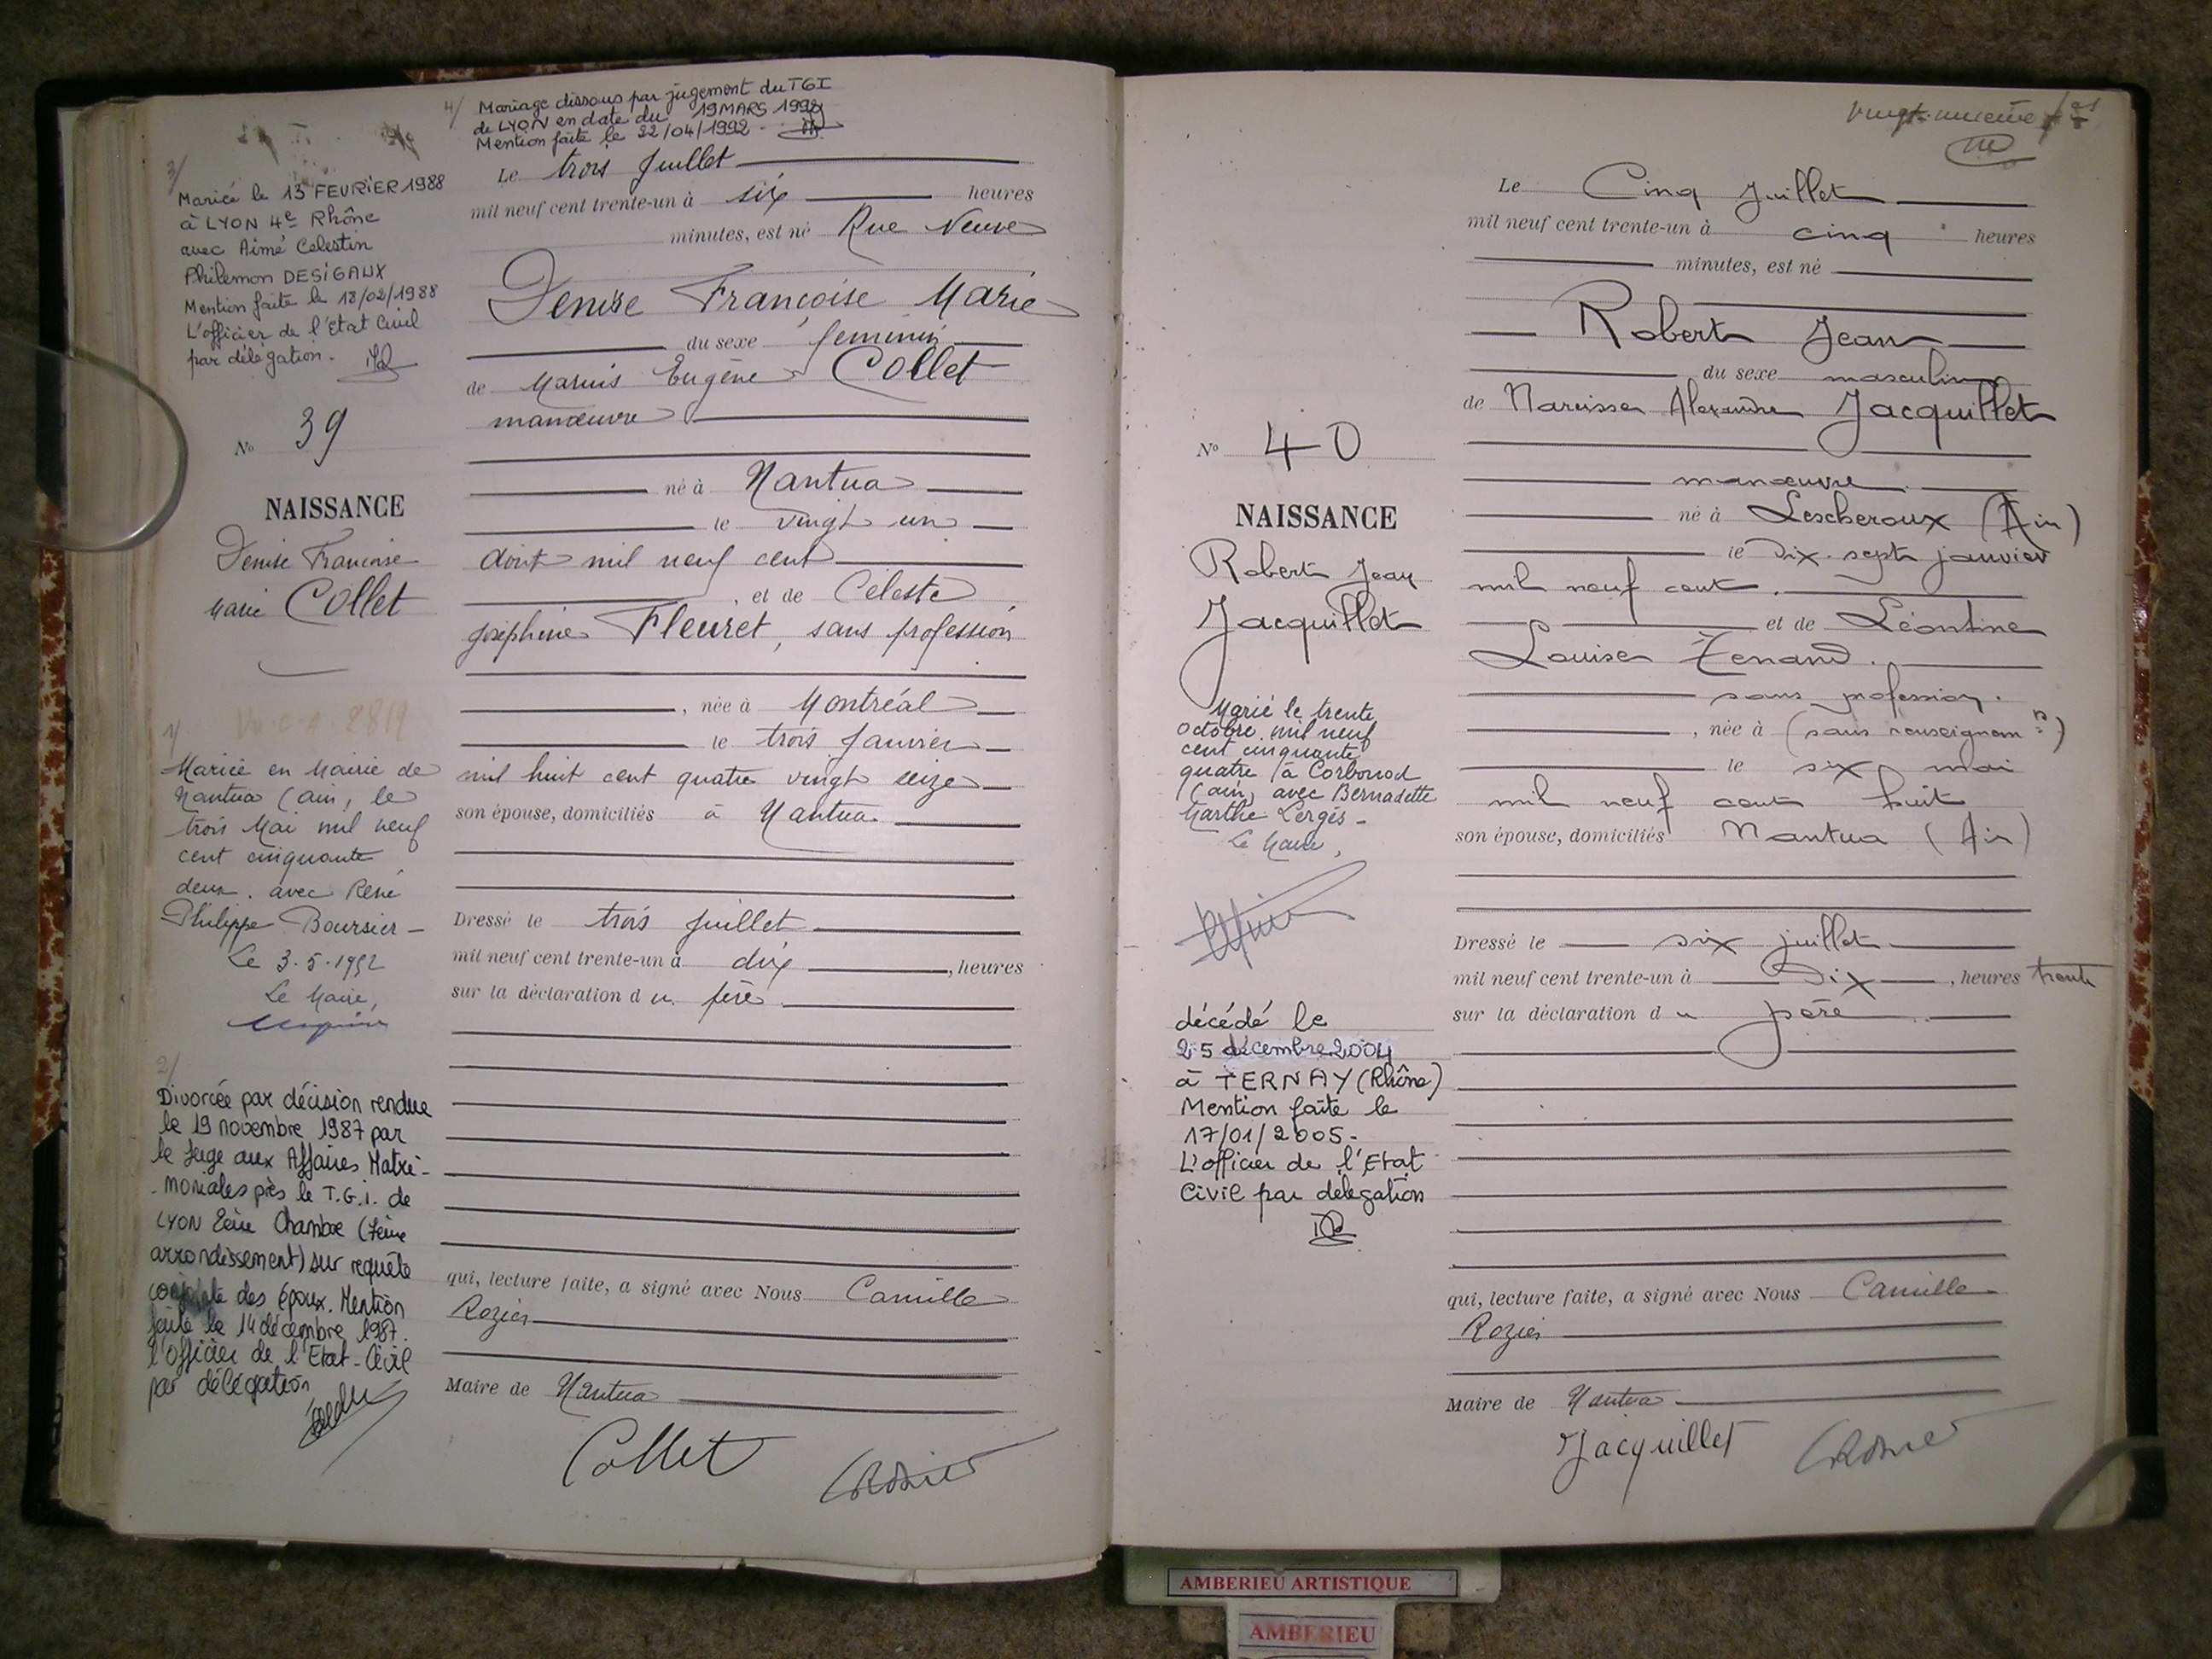 4/ Mariage dissous par jugement du TGI
de LYON en date du 19 MARS 1992
Mention faite le 22/04/1992 -
3/
Mariée le 13 FEVRIER 1988
à LYON 4e Rhône
avec Aimé Celestin
Philemon DESIGAUX
Mention faite le 18/02/1988
L'officier de l'Etat Civil
par délégation -
No 39
NAISSANCE
Denise Françoise
Marie Collet
1/
Mariée en Mairie de
Nantua (Ain, le
trois Mai mil neuf
cent cinquante
deux. avec René
Philippe Boursier -
Le 3.5.1952
Le Maire,
2/
Divorcée par décision rendue
le 19 novembre 1987 par
le Juge aux Affaires Matri-
-moniales près le T.G.I. de
LYON 2ème Chambre (7ème
arrondissement) sur requête
conjointe des époux. Mention
faite le 14 décembre 1987.
l'Officier de l'Etat-Civil
par délégation
Le trois Juillet
mil neuf cent trente-un à six heures
minutes, est né Rue Neuve
Denise Françoise Marie
du sexe féminin
de Marius Eugène Collet
manœuvre
né à Nantua
le vingt un
Août mil neuf cent
, et de Céleste
Joséphine Fleuret, sans profession
, née à Montréal
le trois Janvier
mil huit cent quatre vingt seize
son épouse, domiciliés à Nantua
Dressé le trois juillet
mil neuf cent trente-un à dix , heures
sur la déclaration d u père
qui, lecture faite, a signé avec Nous Camille
Rozier
Maire de Nantua
Collet
CRozier
vingt-unième
No 40
NAISSANCE
Robert Jean
Jacquillet
Marié le trente
octobre mil neuf
cent cinquante
quatre à Corbonod
(Ain, avec Bernadette
Marthe Lergès -
Le Maire,
décédé le
25 décembre 2004
à TERNAY (Rhône)
Mention faite le
17/01/2005 -
L'officier de l'Etat
Civil par délégation
Le Cinq Juillet
mil neuf cent trente-un à cinq heures
minutes, est né
Robert Jean
du sexe masculin
de Narcisse Alexandre Jacquillet
manœuvre
né à Lescheroux (Ain)
le Dix-sept janvier
mil neuf cent.
et de Léontine
Louise Tenand.
sans profession.
, née à (sans renseignem ts)
le six mai
mil neuf cent huit
son épouse, domiciliés Nantua (Ain)
Dressé le six juillet
mil neuf cent trente-un à Dix , heures trente
sur la déclaration d u père
qui, lecture faite, a signé avec Nous Camille
Rozier
Maire de Nantua
Jacquillet
CRozier
AMBERIEU ARTISTIQUE
AMBERIEU